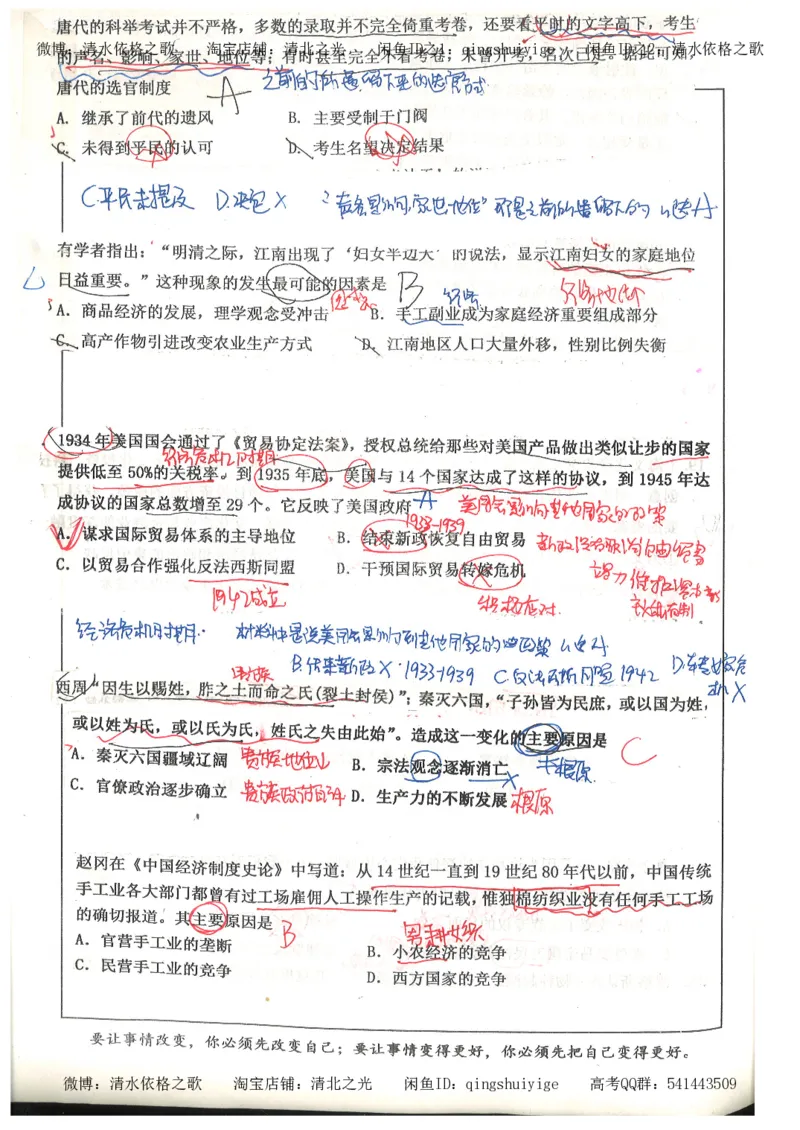 唐代的科举考试并不严格，多数的录取并不完全倚重考卷，还要看平时的文字高下，考生
微博：清水依格之歌 淘宝店铺：清北之光 闲鱼ID之1：qingshuiyige 闲鱼ID之2：清水依格之歌
的声名、影响、家世、地位等；有时甚至完全不看考卷，未曾开考，名次已定。据此可知，
唐代的选官制度 A
A. 继承了前代的遗风 B. 主要受制于门阀
C. 未得到平民的认可 D. 考生名望决定结果
C.平民未提及 D.决定 X
有学者指出：“明清之际，江南出现了‘妇女半边天’的说法，显示江南妇女的家庭地位
日益重要。”这种现象的发生最可能的因素是 B
经济地位
A. 商品经济的发展，理学观念受冲击 B. 手工副业成为家庭经济重要组成部分
C. 高产作物引进改变农业生产方式 D. 江南地区人口大量外移，性别比例失衡
1934年美国国会通过了《贸易协定法案》，授权总统给那些对美国产品做出类似让步的国家
经济危机时期
提供低至50%的关税率。到1935年底，美国与14个国家达成了这样的协议，到1945年达
成协议的国家总数增至29个。它反映了美国政府 A
1933-1939
A. 谋求国际贸易体系的主导地位 B. 结束新政恢复自由贸易
C. 以贸易合作强化反法西斯同盟 D. 干预国际贸易转嫁危机
1942成立 积极应对.
经济危机时期.
B.结束新政 X.1933-1939 C.反法西斯同盟 1942
西周“因生以赐姓，胙之土而命之氏(裂土封侯)”；秦灭六国，“子孙皆为民庶，或以国为姓，
或以姓为氏，或以氏为氏，姓氏之失由此始”。造成这一变化的主要原因是 C
A. 秦灭六国疆域辽阔 B. 宗法观念逐渐消亡
C. 官僚政治逐步确立 D. 生产力的不断发展 根原
赵冈在《中国经济制度史论》中写道：从14世纪一直到19世纪80年代以前，中国传统
手工业各大部门都曾有过工场雇佣人工操作生产的记载，惟独棉纺织业没有任何手工工场
的确切报道。其主要原因是 B 男耕女织
A. 官营手工业的垄断 B. 小农经济的竞争
C. 民营手工业的竞争 D. 西方国家的竞争
要让事情改变，你必须先改变自己；要让事情变得更好，你必须先把自己变得更好。
微博：清水依格之歌 淘宝店铺：清北之光 闲鱼ID：qingshuiyige 高考QQ群：541443509